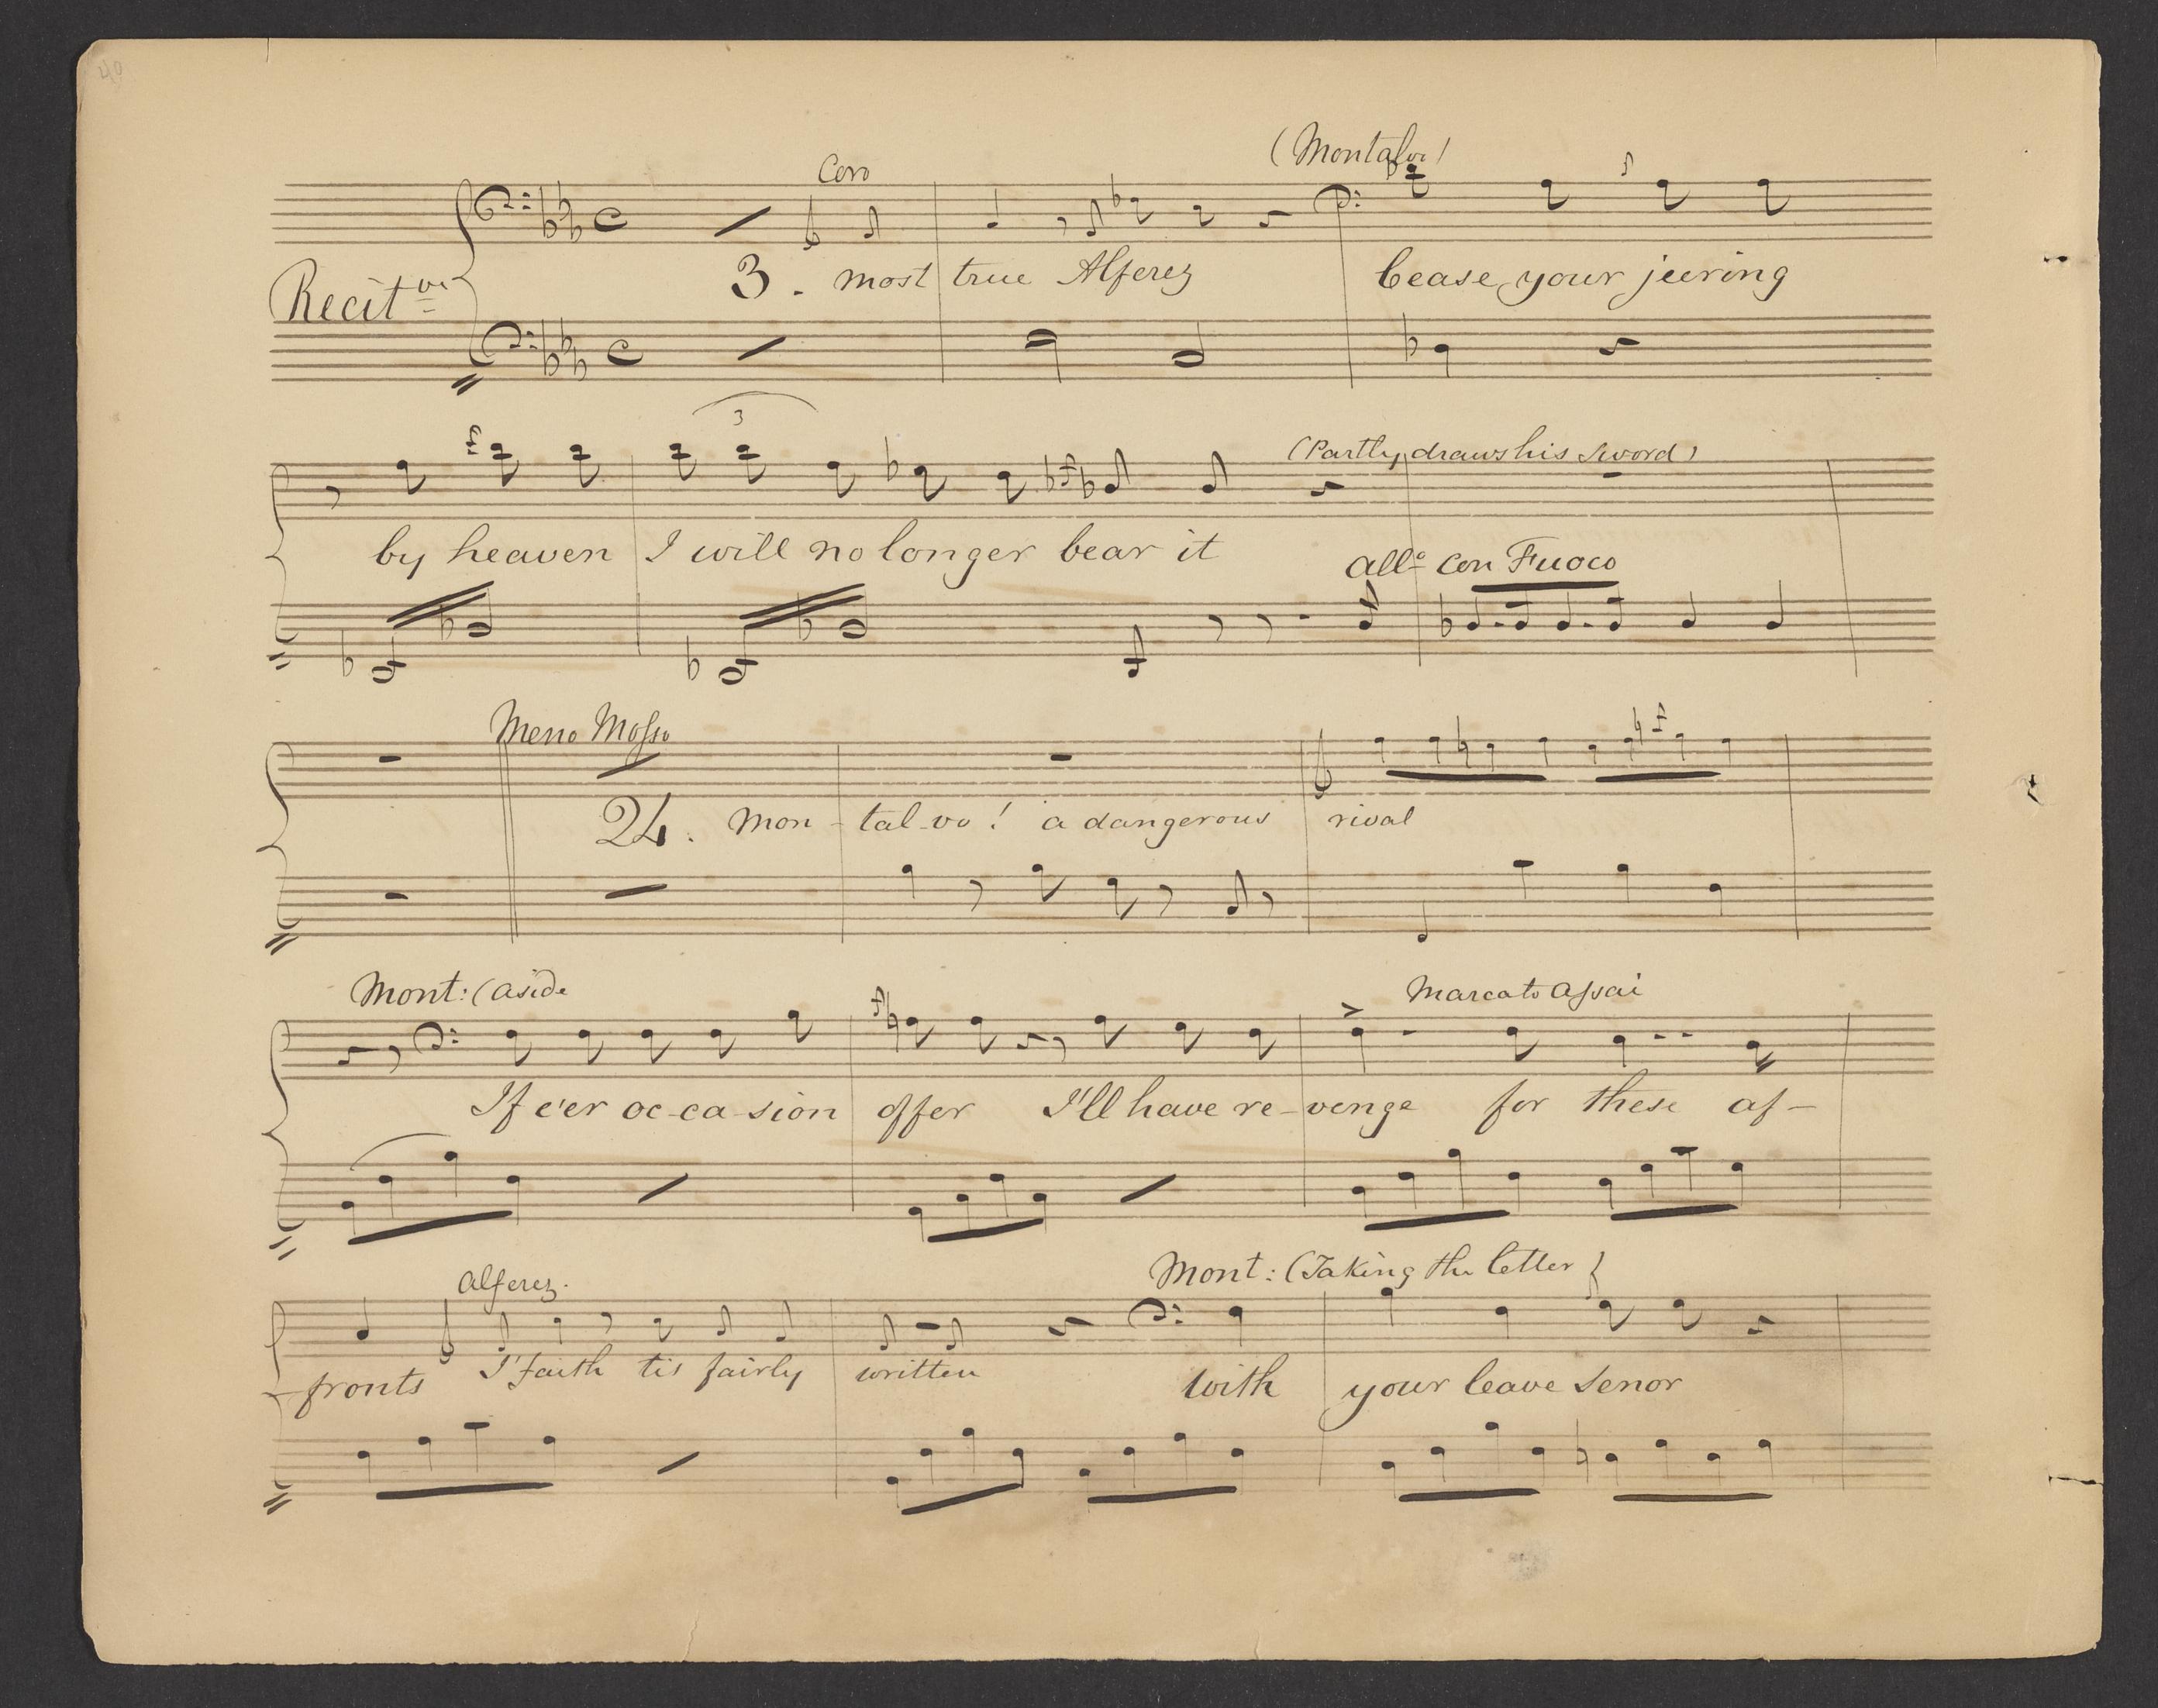 40
Coro (Montalvo)
Recit.ve
3. most true Alferez Cease your jeering
3
(Partly draws his sword)
by heaven I will no longer bear it
All.o con Fuoco
Meno Mosso
24. Mon-tal-vo! a dangerous rival
Mont: (aside Marcato assai
If e'er oc-ca-sion offer I'll have re-venge for these af-
Alferez. Mont: (Taking the letter)
-fronts I'faith tis fairly written with your leave Senor